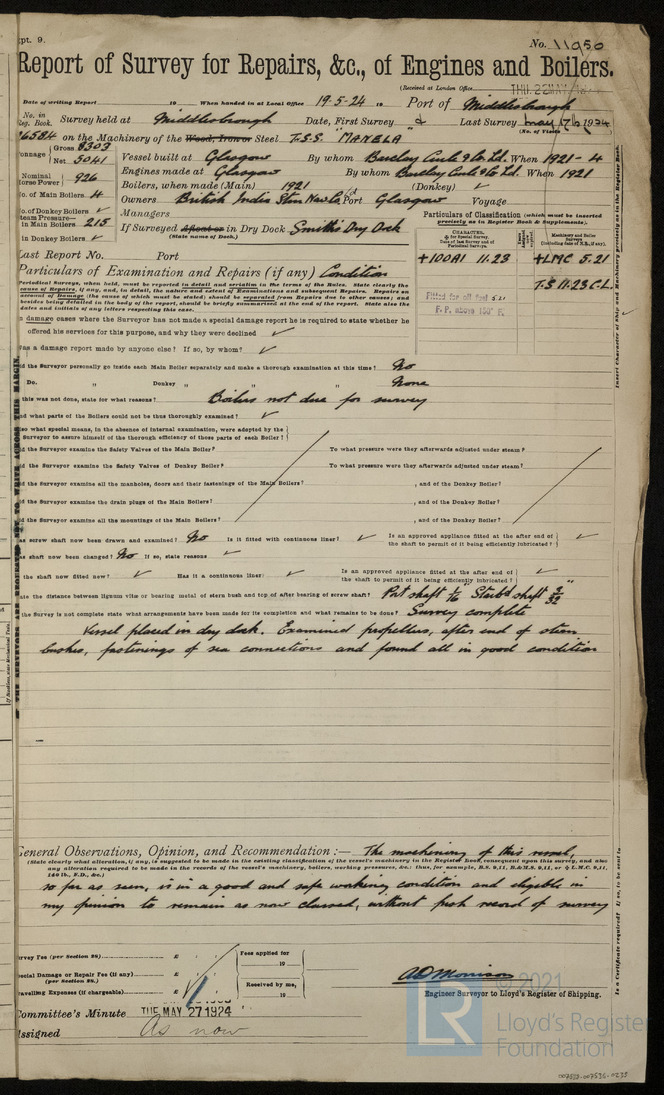 pt. 9.
No. 11950
Report of Survey for Repairs, &c., of Engines and Boilers.
(Received at London Office THU. 22 MAY
Date of writing Report 19 When handed in at Local Office 19-5-24 19 Port of Middlesbrough
No. in Reg. Book. Survey held at Middlesbrough Date, First Survey & Last Survey May 17th 1924
(No. of Visits
6584 on the Machinery of the Wood, Iron or Steel T.S.S "MANELA"
Tonnage Gross 8303
Net 5041
Vessel built at Glasgow By whom Barclay Curle & Co. Ld. When 1921-4
Nominal Horse Power 926
Engines made at Glasgow By whom Barclay Curle & Co Ld. When 1921
No. of Main Boilers 4
Boilers, when made (Main) 1921 (Donkey) ✓
No. of Donkey Boilers ✓
Owners British India Stm Nav Co Ld Port Glasgow Voyage
Steam Pressure— in Main Boilers 215
Managers
in Donkey Boilers ✓
If Surveyed Afloat or in Dry Dock Smith's Dry Dock
(State name of Dock.)
Particulars of Classification (which must be inserted precisely as in Register Book & Supplements).
CHARACTER.
Machinery and Boiler Surveys
+100A1 11.23 +LMC 5.21
T.S 11.23 C.L
Fitted for oil fuel 5.21
F.P. above 150° F.
Last Report No. Port
Particulars of Examination and Repairs (if any) Condition
Periodical Surveys, when held, must be reported in detail and seriatim in the terms of the Rules. State clearly the
cause of Repairs, if any, and, in detail, the nature and extent of Examinations and subsequent Repairs. Repairs on
account of Damage (the cause of which must be stated) should be separated from Repairs due to other causes; and
besides being detailed in the body of the report, should be briefly summarised at the end of the report. State also the
dates and initials of any letters respecting this case.
In damage cases where the Surveyor has not made a special damage report he is required to state whether he
offered his services for this purpose, and why they were declined ✓
Was a damage report made by anyone else? If so, by whom? ✓
Did the Surveyor personally go inside each Main Boiler separately and make a thorough examination at this time? No
Do. " Donkey " " " " None
If this was not done, state for what reasons? Boilers not due for survey
And what parts of the Boilers could not be thus thoroughly examined? ✓
Also what special means, in the absence of internal examination, were adopted by the
Surveyor to assure himself of the thorough efficiency of those parts of each Boiler?
Did the Surveyor examine the Safety Valves of the Main Boiler? To what pressure were they afterwards adjusted under steam?
Did the Surveyor examine the Safety Valves of Donkey Boiler? To what pressure were they afterwards adjusted under steam?
Did the Surveyor examine all the manholes, doors and their fastenings of the Main Boilers? , and of the Donkey Boiler?
Did the Surveyor examine the drain plugs of the Main Boilers? , and of the Donkey Boiler?
Did the Surveyor examine all the mountings of the Main Boilers? , and of the Donkey Boiler?
Has screw shaft now been drawn and examined? No Is it fitted with continuous liner? ✓ Is an approved appliance fitted at the after end of the shaft to permit of it being efficiently lubricated? ✓
Has shaft now been changed? No If so, state reasons ✓
Is the shaft now fitted new? ✓ Has it a continuous liner? ✓ Is an approved appliance fitted at the after end of the shaft to permit of it being efficiently lubricated? ✓
State the distance between lignum vitæ or bearing metal of stern bush and top of after bearing of screw shaft? Port shaft 1/16" Starbd shaft 3/32"
If the Survey is not complete state what arrangements have been made for its completion and what remains to be done? Survey complete
Vessel placed in dry dock. Examined propellers, after end of stern
bushes, fastenings of sea connections and found all in good condition
General Observations, Opinion, and Recommendation:— The machinery of this vessel,
(State clearly what alteration, if any, is suggested to be made in the existing classification of the vessel's machinery in the Register Book, consequent upon this survey, and also
any alteration required to be made in the records of the vessel's machinery, boilers, working pressures, &c.: thus, for example, B.S. 9,11, B.&M.S. 9,11, or L.M.C. 9,11,
140 lb., F.D., &c.)
so far as seen, is in a good and safe working condition and eligible in
my opinion to remain as now classed, without fresh record of survey
Survey Fee (per Section 28) £
Special Damage or Repair Fee (if any) £
(per Section 28.)
Travelling Expenses (if chargeable) £
Fees applied for
19
Received by me,
19
A D Morrison
Engineer Surveyor to Lloyd's Register of Shipping.
Committee's Minute TUE. MAY 27 1924
Assigned As now
© 2021
LR
Lloyd's Register
Foundation
007529-007536-0235